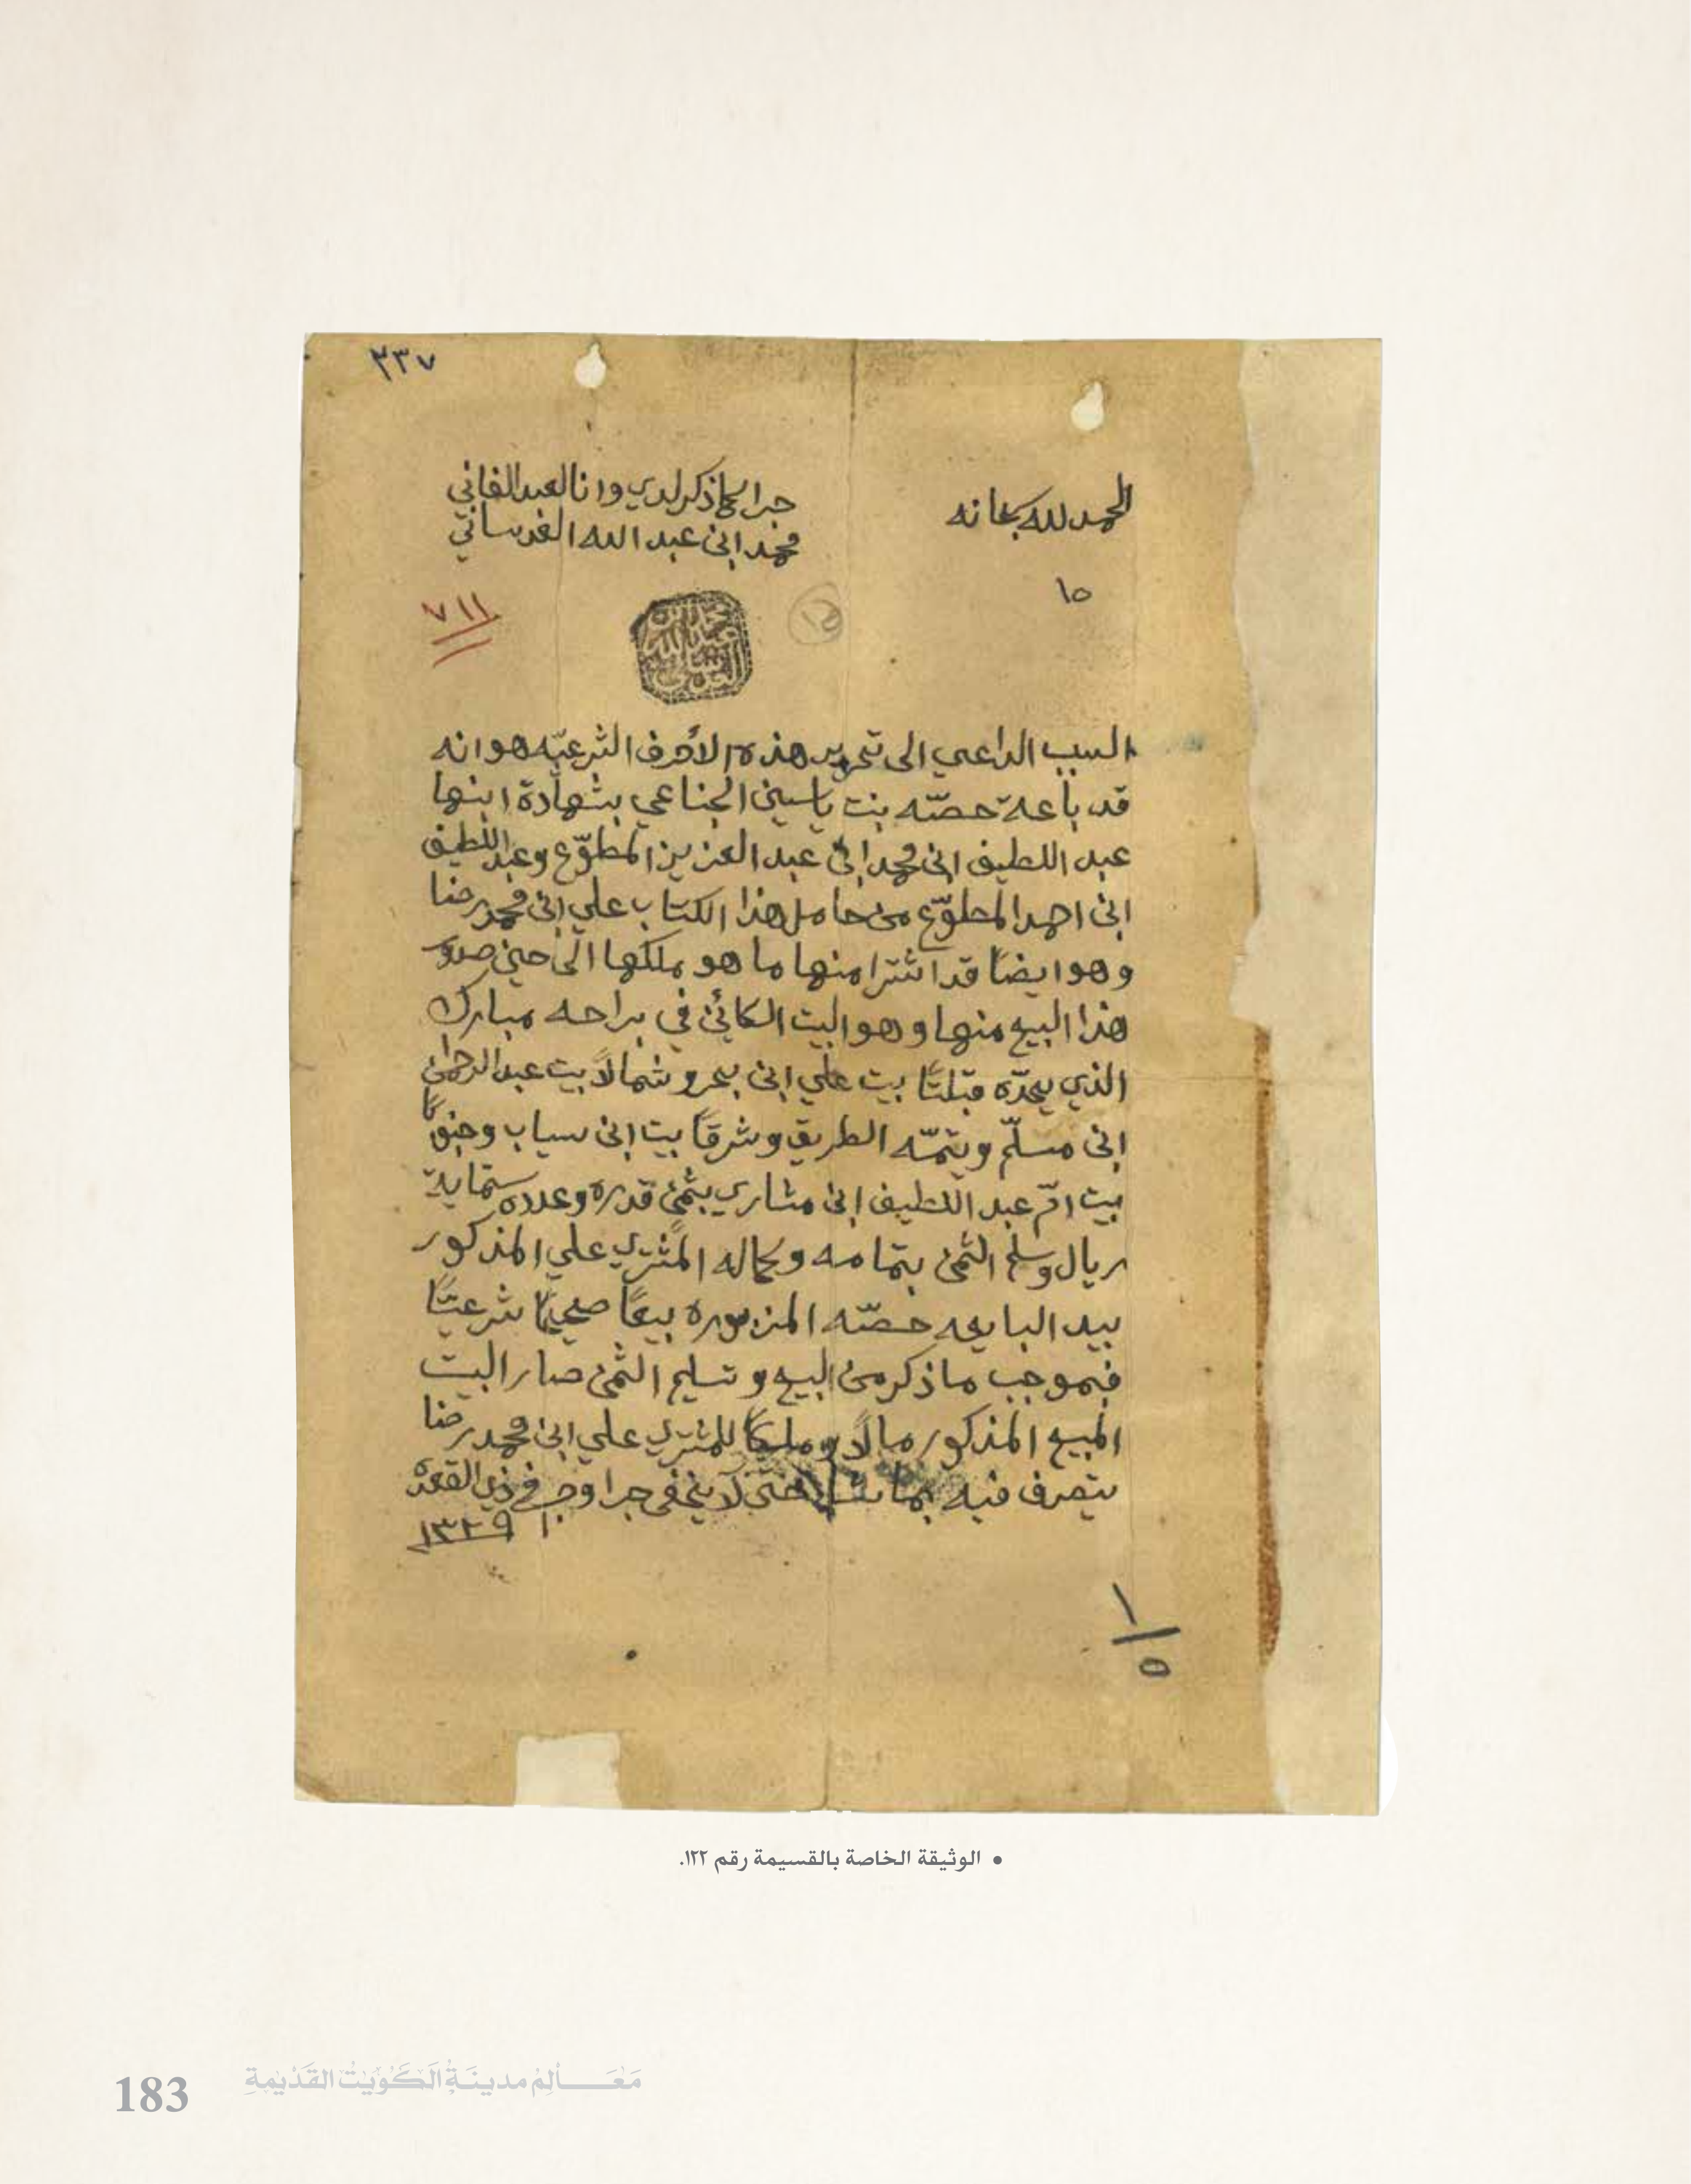 ٣٣٧
الحمد لله سبحانه
جرا كما ذكر لدي وانا العبد الفاني
محمد ابن عبد الله العدساني
١٥
١٥
٧١١
محمد بن عبد الله العدساني
السبب الداعي الى تحرير هذه الأحرف الشرعيّه هو انه
قد باعة حصّه بنت ياسين الجناعي بشهادة ابنها
عبد اللطيف ابن محمد ابن عبد العزيز المطوّع وعبد اللطيف
ابن احمد المطوّع من حامل هذا الكتاب علي ابن محمد رضا
وهو ايضًا قد اشترا منها ما هو ملكها الى حين صدور
هذا البيع منها وهو البيت الكائن في براحه مبارك
الذي يحدّه قبلتًا بيت علي ابن بحر وشمالاً بيت عبد الرحمن
ابن مسلّم ويتمّه الطريق وشرقاً بيت ابن سياب وجنوبًا
بيت امّ عبد اللطيف ابن مشاري بثمن قدره وعدده ستماية
ريال وسلم الثمن بتمامه وكماله المشتري علي المذكور
بيد البايعه حصّه المزبوره بيعًا صحيحًا شرعيًّا
فبموجب ما ذكر من البيع وتسليم الثمن صار البيت
المبيع المذكور مالاً وملكًا للمشتري علي ابن محمد رضا
يتصرف فيه بما شاء حتى لا يخفى جرا وحرر في ذي القعدة
١٣٢٩
١/٥
• الوثيقة الخاصة بالقسيمة رقم ١٢٢.
183 مَعَالِمُ مدينَةِ الكُوَيْتِ القَدْيمَةِ